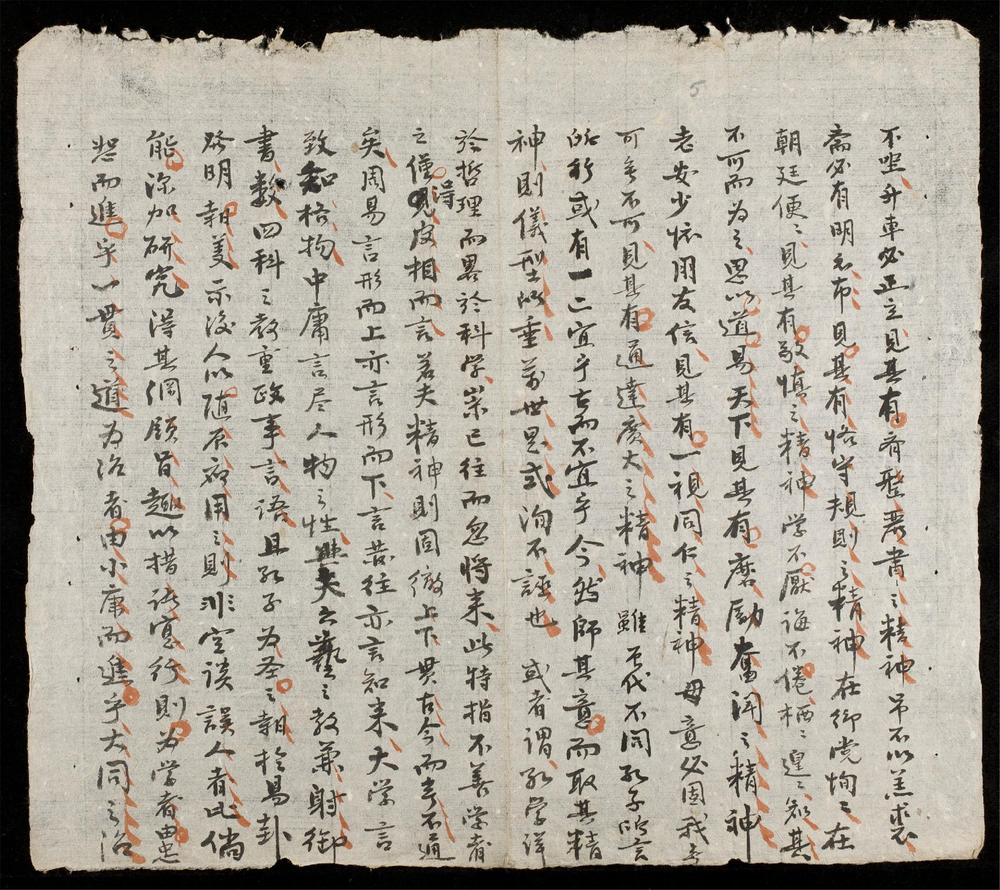 不坐升車必正立見其有齊聖嚴肅之精神吊不以羔裘
齋必有明衣布見其有恪守規則之精神在鄉党恂々在
朝廷便々見其有敬慎之精神學不厭誨不倦栖々遑々知其
不可而為之思以道易天下見其有磨勵奮鬪之精神
老安少怀朋友信見其有一視同仁之精神毋意必固我無
可無不可見其有通達廣大之精神雖古代不同孔子所言
所行或有一二宜乎古而不宜乎今然師其意而取其精
神則儀型所垂萬世思式洵不誣也或者謂孔学詳
於哲理而畧於科学崇已往而忽將来此特指不善学者
之僅得見皮相而言若夫精神則固徹上下貫古今而無不通
矣周易言形而上亦言形而下言藏往亦言知来大学言
致知格物中庸言尽人物之性與夫六藝之教兼射御
書數四科之教重政事言語且孔子為圣之時於易卦
發明時義示後人以随原神用之則非空談誤人者比倘
能深加研究得其綱領旨趣以措諸寔行則为学者由忠
恕而進乎一貫之道为治者由小康而進乎大同之治
5